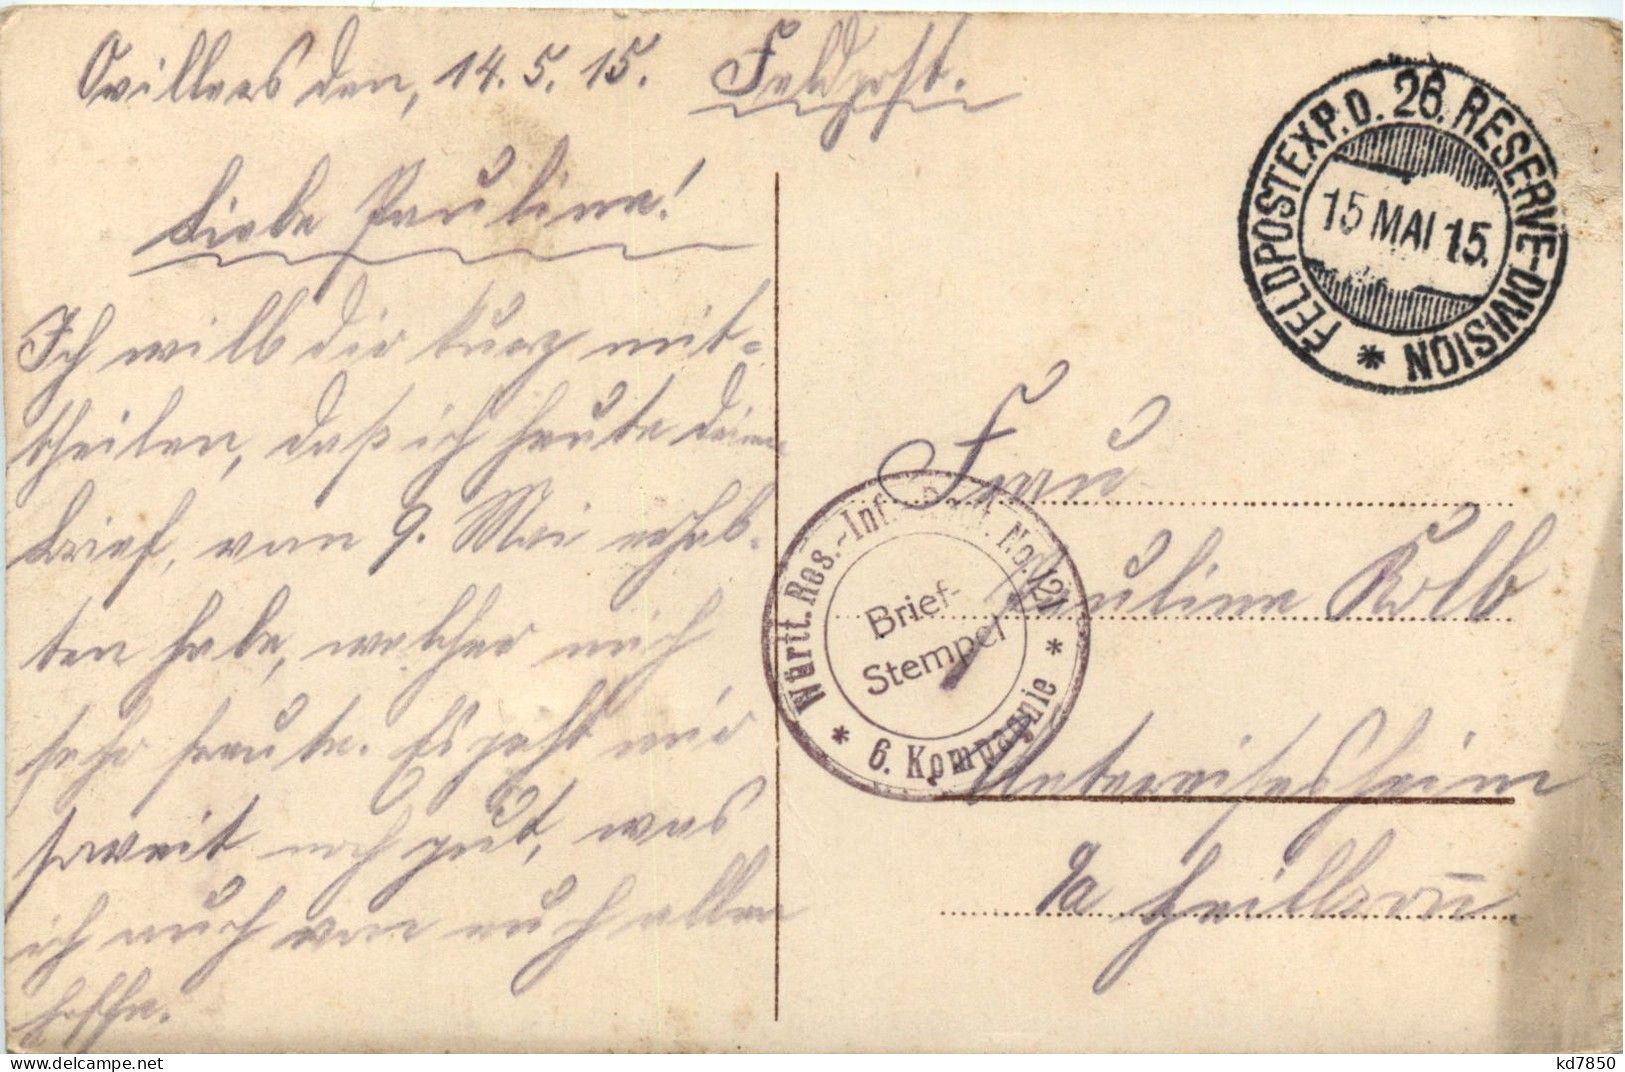 Ovillers den, 14.5.15. Feldpost.
Liebe Pauline!
Ich will dir kurz mit-
theilen, daß ich heute deinen
Brief, vom 9. Mai erhal-
ten habe, welcher mich
sehr freute. Es geht mir
soweit noch gut, was
ich auch von euch allen
hoffe.
FELDPOSTEXP. D. 26. RESERVE-DIVISION *
15 MAI 15.
Württ. Res.-Inf. Regt. No. 121
Brief-
Stempel
* 6. Kompagnie *
Frau
Pauline Kolb
Untereisesheim
Heilbronn
www.delcampe.net
kd7850